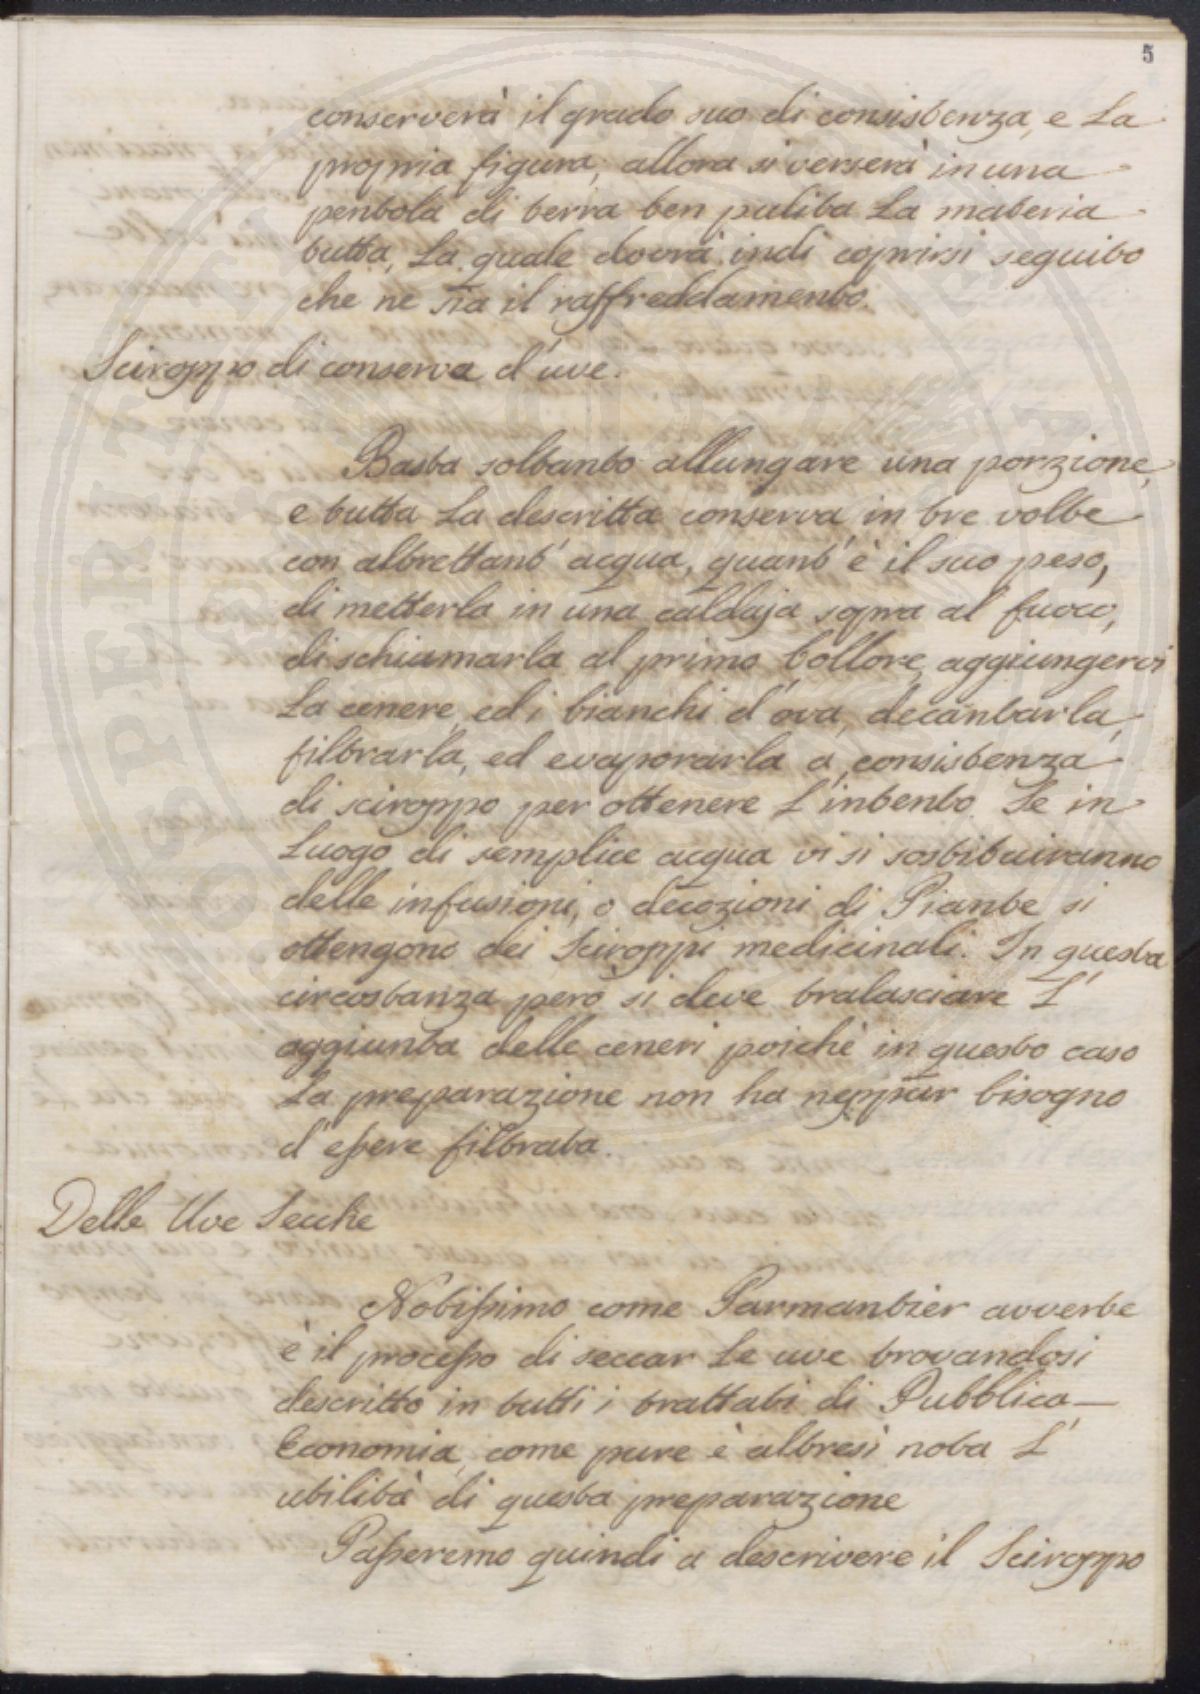 5
conserverà il grado suo di consistenza, e La
propria figura, allora si verserà in una
pentola di terra ben pulita La materia
tutta, La quale dovrà indi coprirsi seguito
che ne sia il raffreddamento.
Sciroppo di conserva d'uve.
Basta soltanto allungare una porzione,
e tutta La descritta conserva in tre volte
con altrettant' acqua, quant' è il suo peso,
di metterla in una caldaja sopra al fuoco,
di schiumarla al primo bollore, aggiungervi
La cenere, ed i bianchi d'ova, decantarla,
filtrarla, ed evaporarla a consistenza
di sciroppo per ottenere L'intento. Se in
Luogo di semplice acqua vi si sostituiranno
delle infusioni, o decozioni di Piante si
ottengono dei Sciroppi medicinali. In questa
circostanza però si deve tralasciare L'
aggiunta delle ceneri poichè in questo caso
La preparazione non ha neppur bisogno
d'essere filtrata.
Delle Uve Secche
Notissimo come Parmantier avverte
è il processo di seccar Le uve trovandosi
descritto in tutti i trattati di Pubblica
Economia, come pure è altresì nota L'
utilità di questa preparazione
Passeremo quindi a descrivere il Sciroppo